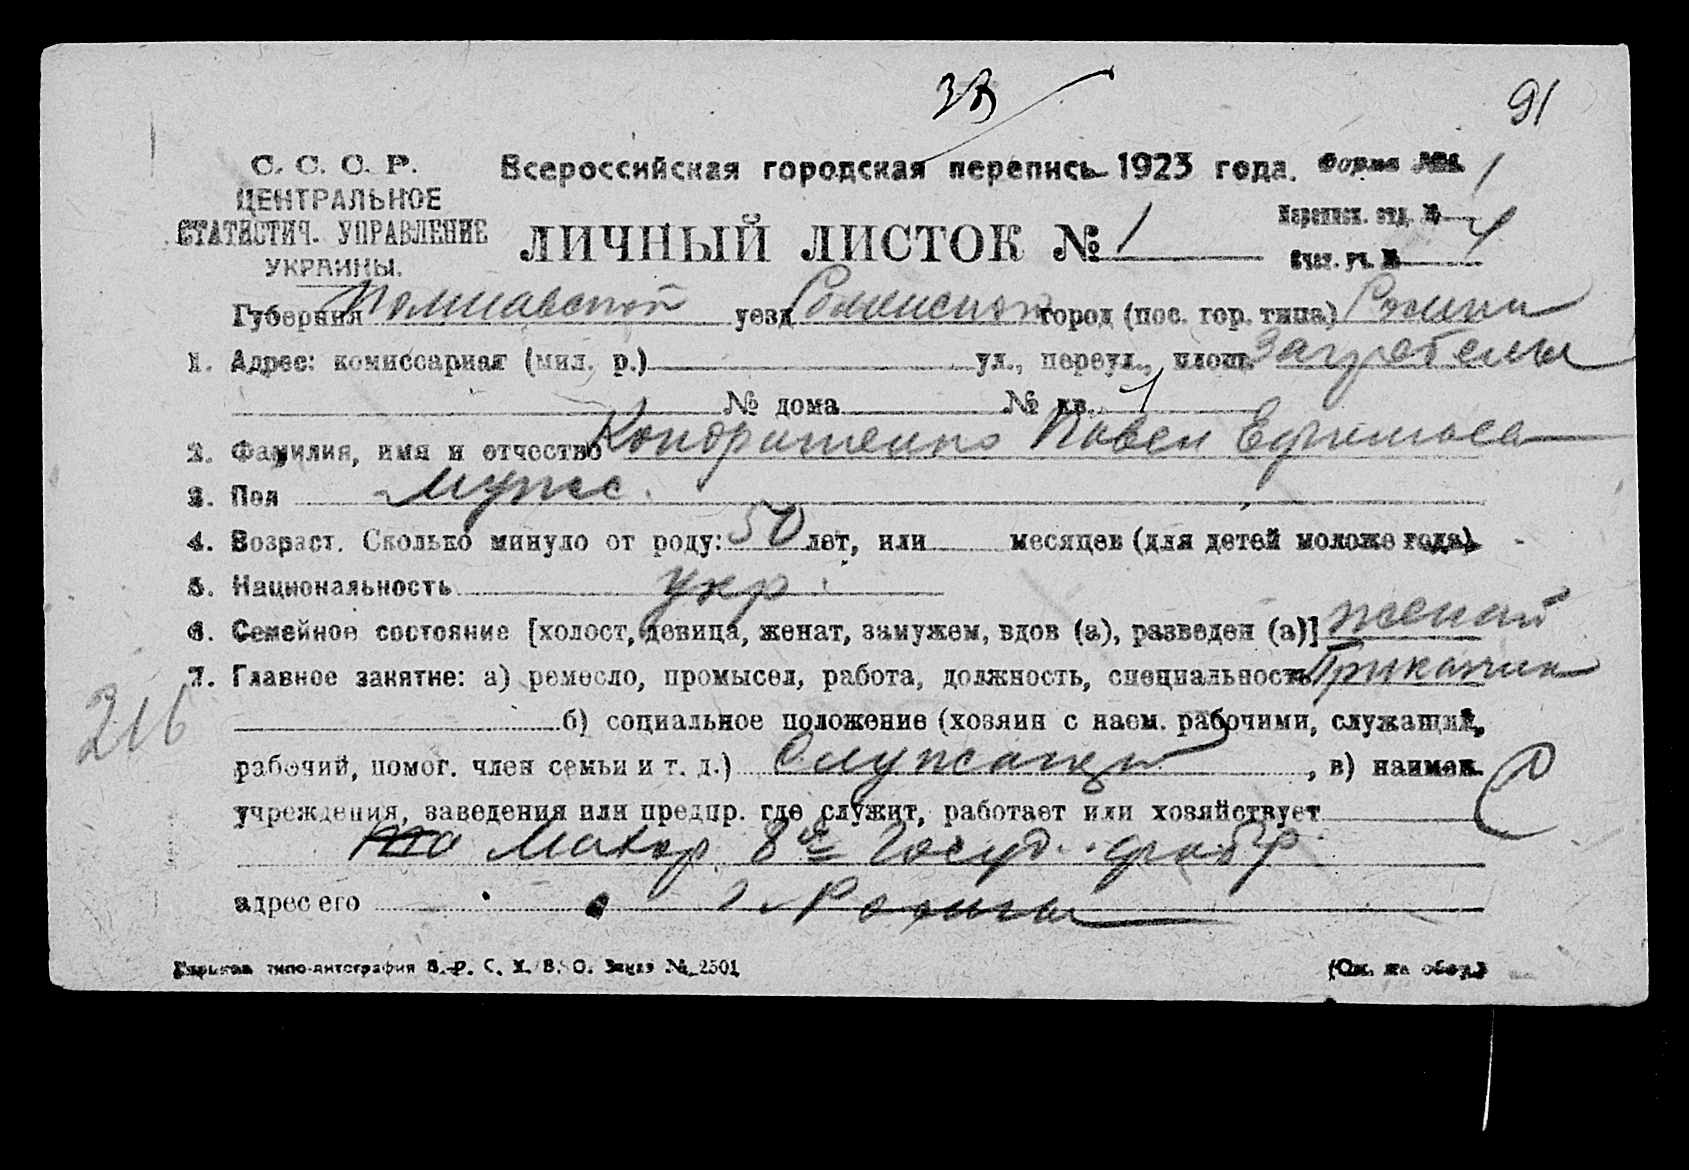 91
С. С. С. Р.
ЦЕНТРАЛЬНОЕ
СТАТИСТИЧ. УПРАВЛЕНИЕ
УКРАИНЫ.
Всероссийская городская перепись 1923 года. Форма № 1
ЛИЧНЫЙ ЛИСТОК № 1
Переписн. отд. №
Счет. уч. № 4
Губерния Полтавской уезд Роменской город (пос. гор. типа) Ромны
1. Адрес: комиссариат (мил. р.) ул., переул., площ. Загребелья
№ дома № кв. 1
2. Фамилия, имя и отчество Кондратенко Павел Ефимов
3. Пол Мужс.
4. Возраст. Сколько минуло от роду: 50 лет, или месяцев (для детей моложе года)
5. Национальность укр
6. Семейное состояние [холост, девица, женат, замужем, вдов (а), разведен (а)] женат
7. Главное занятие: а) ремесло, промысел, работа, должность, специальность Приказчик
216
б) социальное положение (хозяин с наем. рабочими, служащий,
рабочий, помог. член семьи и т. д.) Служащий, в) наимен.
учреждения, заведения или предпр. где служит, работает или хозяйствует
Махор 8я Госуд. фабр
адрес его г. Ромны
Харьков типо-литография В.-Р. С. Х. В. О. Заказ № 2501
(См. на обор.)